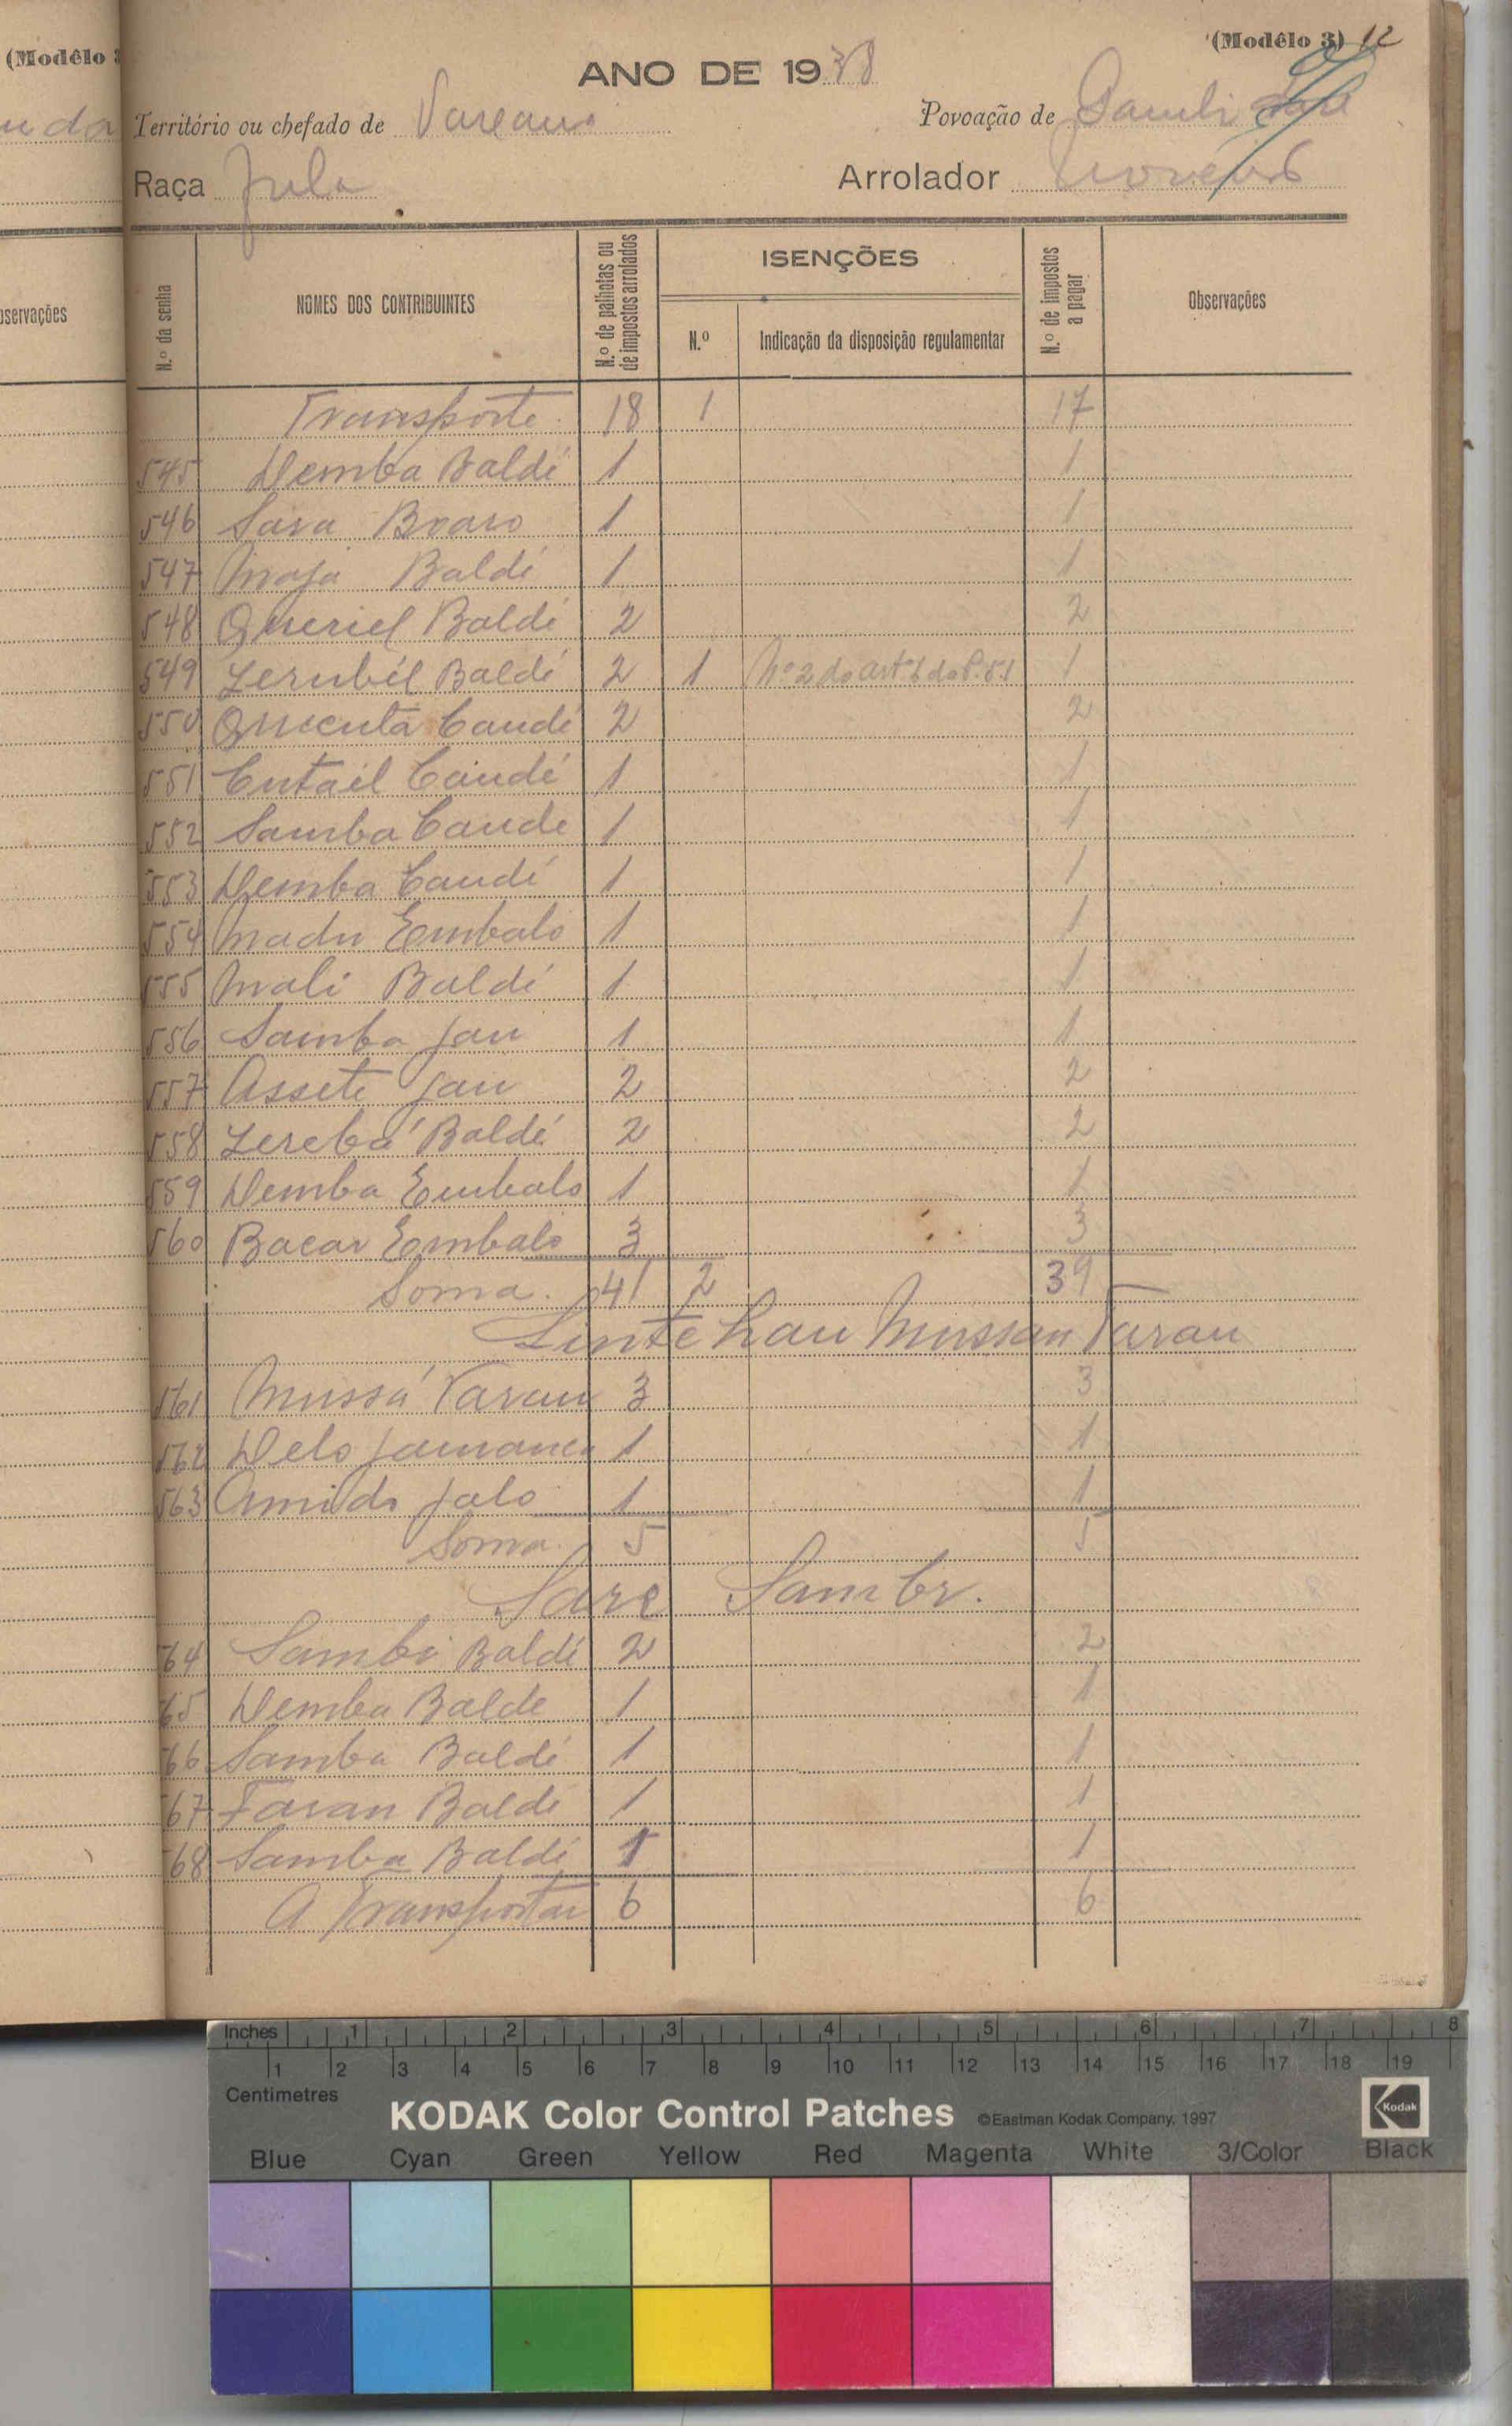 (Modêlo 3
(Modêlo 3) 12
ANO DE 1938
Território ou chefado de
Povoação de
Raça Fula
Arrolador
bservações
N.º da senha
NOMES DOS CONTRIBUINTES
N.º de palhotas ou de impostos arrolados
ISENÇÕES
N.º
Indicação da disposição regulamentar
N.º de impostos a pagar
Observações
Transporte 18 1 17
545 Demba Baldé 1 1
546 1 1
547 Baldé 1 1
548 Baldé 2 2
549 Baldé 2 1 Nº 2 do artº 6 do 1
550 Candé 2 2
551 Candé 1 1
552 Samba Cande 1 1
553 Demba Candé 1 1
554 Madu Embalo 1 1
555 Mali Baldé 1 1
556 Samba Jau 1 1
557 Assete Jau 2 2
558 Baldé 2 2
559 Demba Embalo 1 1
560 Bacar Embalo 3 3
Soma. 41 2 39
561 Mussá 3 3
562 1 1
563 Jalo 1 1
Soma 5 5
Sare
64 Baldé 2 2
65 Demba Balde 1 1
66 Samba Baldé 1 1
67 Baldé 1 1
68 Samba Baldé 1 1
A Transportar 6 6
Inches 1 2 3 4 5 6 7 8
Centimetres 1 2 3 4 5 6 7 8 9 10 11 12 13 14 15 16 17 18 19
KODAK Color Control Patches ©Eastman Kodak Company, 1997 Kodak
Blue Cyan Green Yellow Red Magenta White 3/Color Black